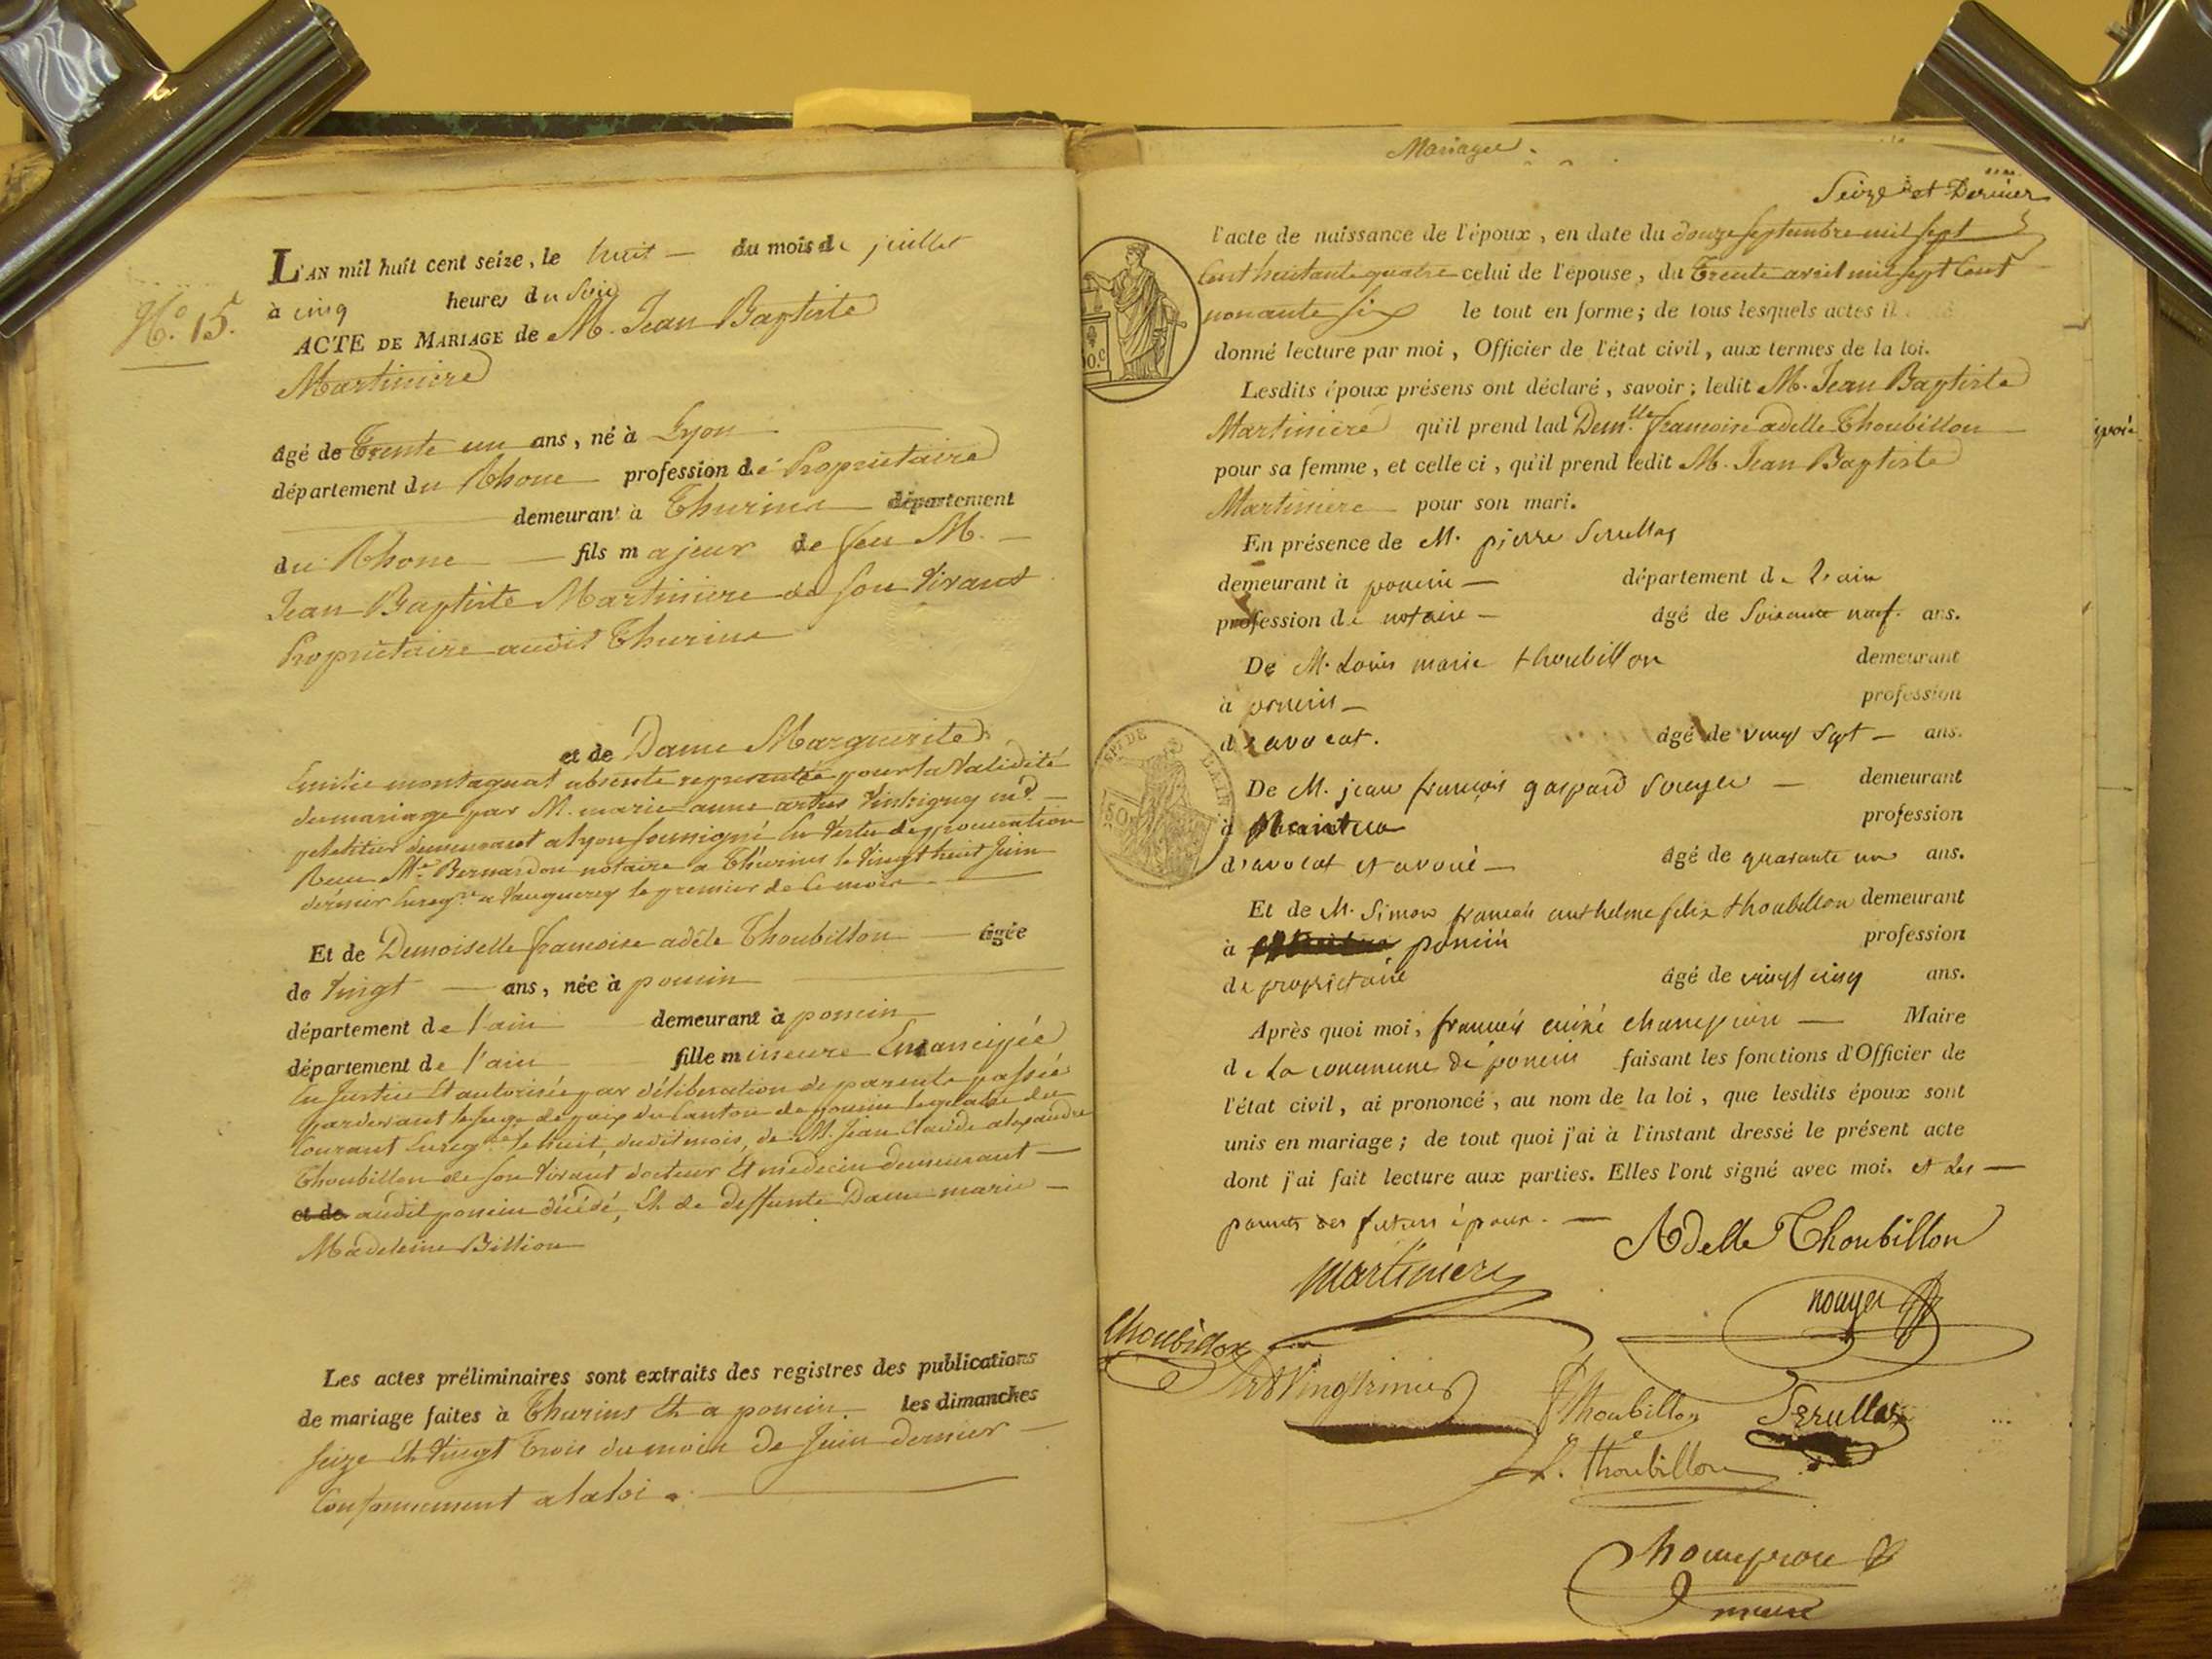 N.o 15.
L'AN mil huit cent seize, le huit — du mois de juillet
à cinq heures du Soir
ACTE DE MARIAGE de M. Jean Baptiste
Martiniere
âgé de Trente un ans, né à Lyon
département du Rhone profession de Proprietaire
demeurant à Thurins département
du Rhone — fils majeur de feu M. —
Jean Baptiste Martiniere de son vivant
Proprietaire audit Thurins
et de Dame Marguerite
Emilie montagnat absente representée pour la Validité
du mariage par M. marie anne artus Vintrigny md. —
pelletier demeurant a lyon soussigné en Vertu de procuration
Recue Me. Bernardon notaire a Thurins le Vingt huit Juin
dernier Enregre. a Vaugneray le premier de ce mois —
Et de Demoiselle francoise adéle Thoubillon — âgée
de Vingt — ans, née à poncin
département de l'ain demeurant à poncin
département de l'ain fille mineure Emancipée
En Justice Et autorisée par déliberation de parents passée
pardevant le Juge de paix du Canton de poncin le quatre du
Courant Enregtrée le huit, dudit mois, de M. Jean Claude alexandre
Thoubillon de son Vivant docteur Et médecin demeurant —
et de audit poncin décédé, Et de deffunte Dame marie —
Madeleine Billion
Les actes préliminaires sont extraits des registres des publications
de mariage faites à Thurins Et a poncin les dimanches
Seize Et Vingt Trois du mois de Juin dernier —
Conformement a la loi.
Mariages.
Seize et Dernier
l'acte de naissance de l'époux, en date du douze septembre mil sept
Cent huitante quatre celui de l'épouse, du Trente avril mil sept Cent
nonante six le tout en forme; de tous lesquels actes il
donné lecture par moi, Officier de l'état civil, aux termes de la loi.
Lesdits époux présens ont déclaré, savoir; ledit M. Jean Baptiste
Martiniere qu'il prend lad Demlle. francoise adelle Thoubillon
pour sa femme, et celle ci, qu'il prend ledit M. Jean Baptiste
Martiniere pour son mari.
En présence de M. pierre Serullas
demeurant à poncin — département de l'ain
profession de notaire — âgé de Soixante neuf. ans.
De M. Louis marie thoubillon demeurant
à poncin — profession
d'avocat. âgé de vingt Sept — ans.
De M. jean françois gaspard — demeurant
à Nantua profession
d'avocat et avoué — âgé de quarante un ans.
Et de M. Simon françois anthelme felix thoubillon demeurant
à poncin profession
de propriétaire âgé de vingt cinq ans.
Après quoi moi, françois aimé champion — Maire
de La commune de poncin faisant les fonctions d'Officier de
l'état civil, ai prononcé, au nom de la loi, que lesdits époux sont
unis en mariage; de tout quoi j'ai à l'instant dressé le présent acte
dont j'ai fait lecture aux parties. Elles l'ont signé avec moi. et les —
parents des futurs époux. —
Adelle Thoubillon
Martiniere
nouyer
Thoubillon
Thoubillon
Serullas
L. Thoubillon
Champion
maire
50c
DEPt DE L'AIN